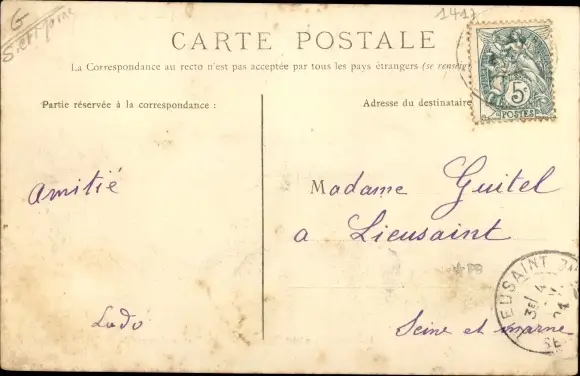 G
S. et Marne
1417
CARTE POSTALE
La Correspondance au recto n'est pas acceptée par tous les pays étrangers (se renseig
Partie réservée à la correspondance :
Adresse du destinataire
5c
POSTES
amitié
Madame Guitel
a Lieusaint
Ludo
Seine et marne
EUSAINT
3E / 4
SE